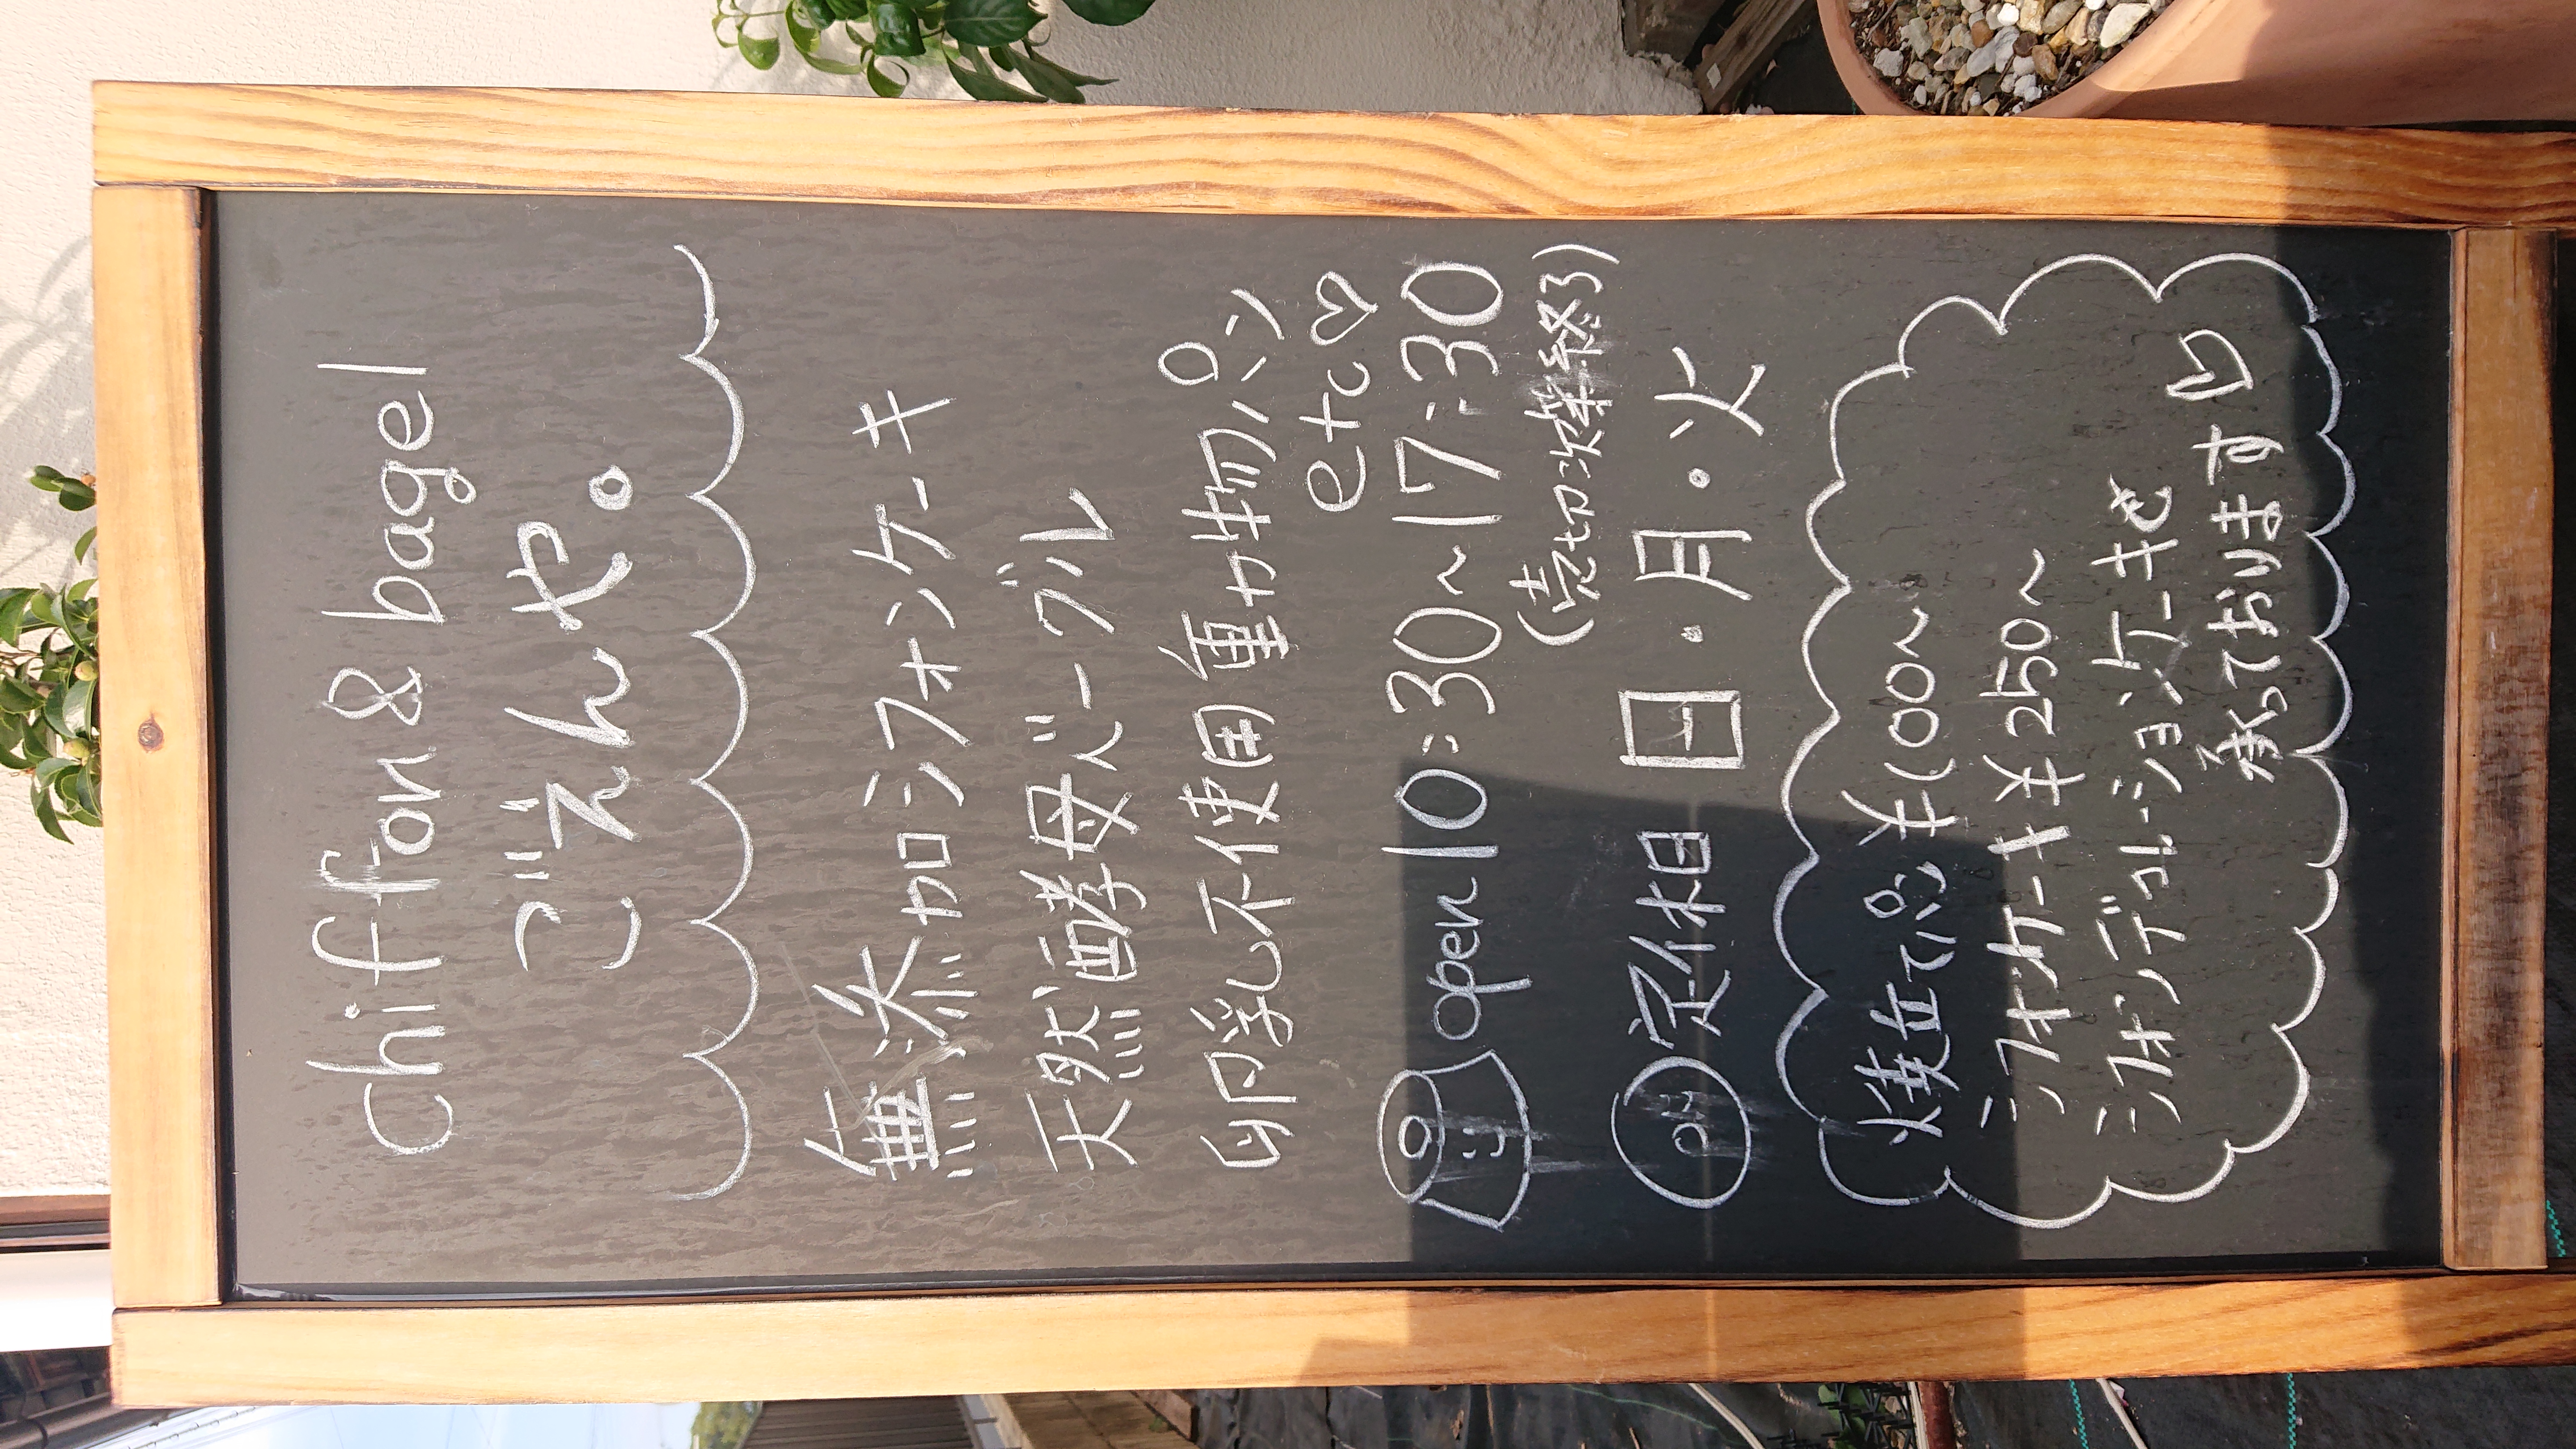 Chiffon & bagel
ごえんや。
無添加シフォンケーキ
天然酵母ベーグル
卵乳不使用 動物パン
etc♡
open 10:30~17:30
(売切次第終了)
定休日 日・月・火
焼立パン ¥100~
シフォンケーキ ¥250~
シフォンデコレーションケーキも
承っております♡